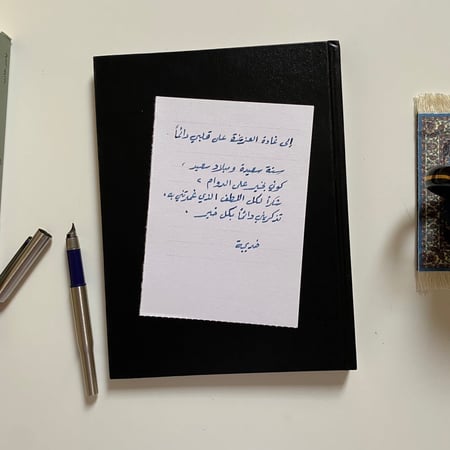 إلى غادة العزيزة على قلبي دائماً
سنة سعيدة وميلاد سعيد ،
كوني بخير على الدوام ،
شكراً لكل اللطف الذي غمرتني به ،
تذكريني دائماً بكل خير .
خديجة